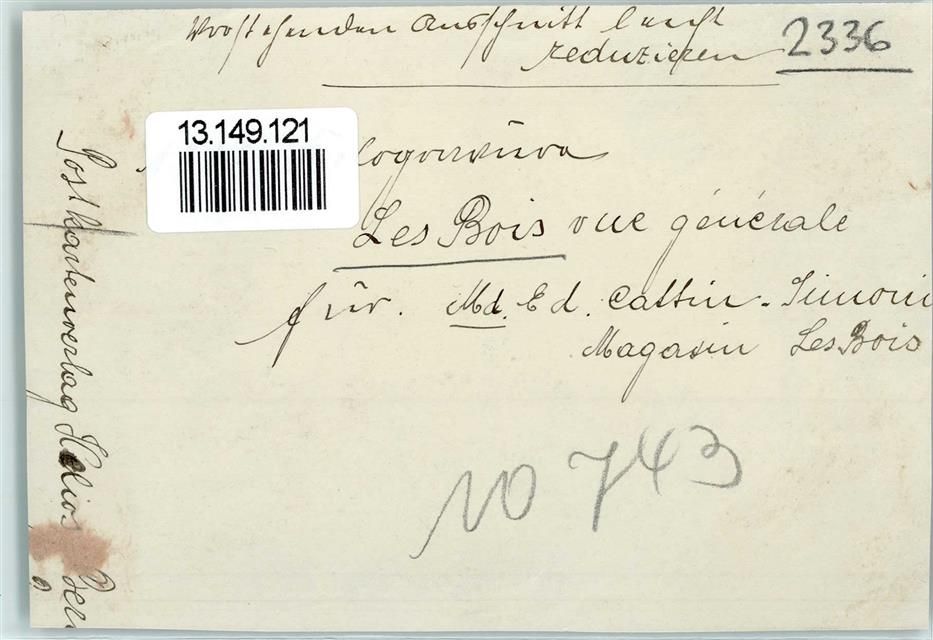 Vorstehenden Ausschnitt leicht
reduzieren 2336
13.149.121
Les Bois vue générale
für. Md. Ed. Cattin-Simonin
Magasin Les Bois
No 743
Postkartenverlag Helios